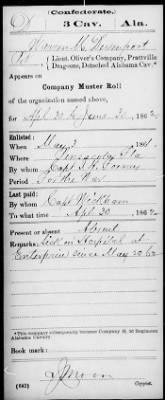 (Confederate.)
D 3 Cav. Ala.
Warren K. Davenport
Pvt { Lieut. Oliver's Company, Prattville
Dragoons, Detached Alabama Cav.*
Appears on
Company Muster Roll
of the organization named above,
for April 30 to June 30, 1862.
Enlisted:
When May 1861.
Where Pensacola, Fla
By whom Capt
Period For the War
Last paid:
By whom Capt Wickham
To what time Apl 30, 1862.
Present or absent Absent
Remarks: Sick in Hospital at
Enterprise since May 20 62
*This company subsequently became Company H, 3d Regiment
Alabama Cavalry.
Book mark:
(642)
Copyist.